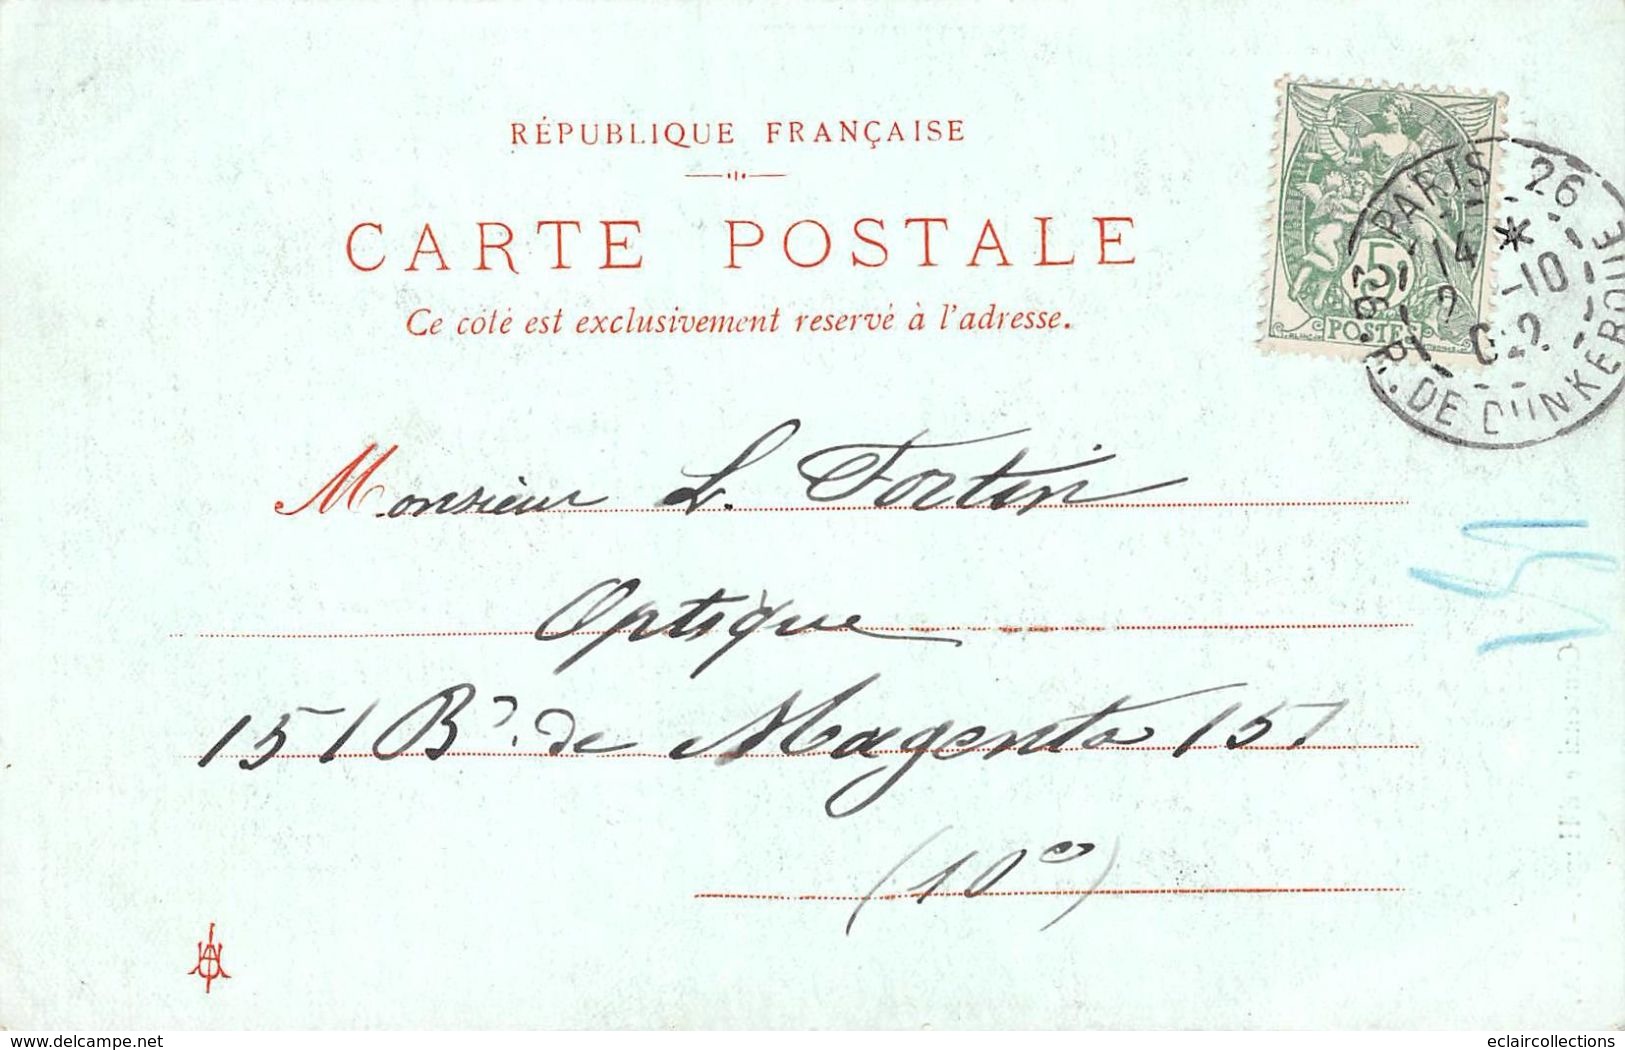 RÉPUBLIQUE FRANÇAISE
CARTE POSTALE
Ce côté est exclusivement reservé à l'adresse.
5
POSTES
PARIS 26
14 * 2 -10 02
R. DE DUNKERQUE
Monsieur L. Fortin
Optique
151 Bd. de Magenta 151
(10e)
delcampe.net
eclaircollections